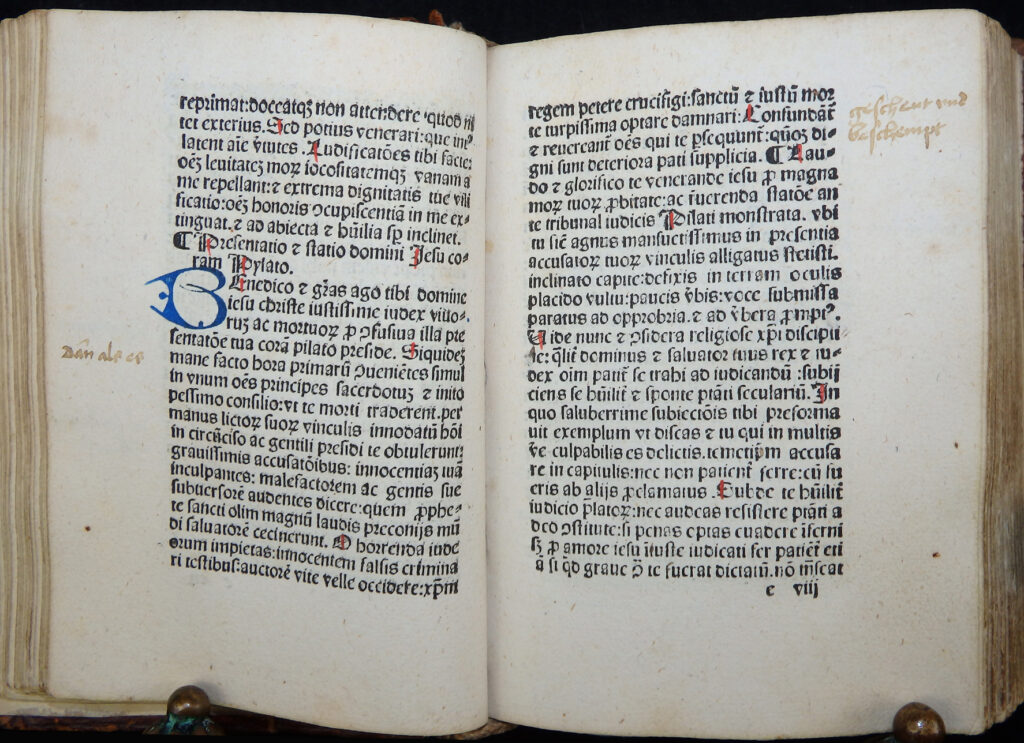 reprimat: doceatqȝ non attendere quod ni
tet exterius. Sed potius venerari: que inꝰ
latent aīe v̄tutes. Ludificatōes tibi facte:
oēs leuitateȝ moꝝ iocositatemqȝ vanam a
me repellant: ⁊ extrema dignitatis tue vili
ficatio: oēȝ honoris ↄcupiscentiā in me ex-
tinguat. ⁊ ad abiecta ⁊ hūilia sp̄ inclinet.
¶ Presentatio ⁊ statio domini Jesu co-
ram Pylato.
BEnedico ⁊ gr̄as ago tibi domine
iesu christe iustissime iudex viuo-
ruȝ ac mortuoꝝ ꝓ ↄfusiua illa pre
sentatōe tua corā pilato preside. Siquideȝ
mane facto hora primarū ↄueniētes simul
in vnum oēs principes sacerdotuȝ ⁊ inito
pessimo consilio: vt te morti traderent. per
manus lictoꝝ suoꝝ vinculis innodatū hoī
in circūciso ac gentili presidi te obtulerunt:
grauissimis accusatōibus: innocentiaȝ tuā
inculpantes: malefactorem ac gentis sue
subuersorē audentes dicere: quem ꝓphe-
te sancti olim magnū laudis preconijs mū
di saluatorē cecinerunt. O horrenda iude
orum impietas: innocentem falsis crimina
ri testibus: auctorē vite velle occidere: xp̄m
dan̄ als es
regem petere crucifigi: sanctū ⁊ iustū mor
te turpissima optare damnari: Confundāt̄
⁊ reuereant̄ oēs qui te ꝑsequunt̄: quoꝝ di-
gni sunt deteriora pati supplicia. ¶ Lau-
do ⁊ glorifico te venerande iesu ꝓ magna
moꝝ tuoꝝ ꝓbitate: ac fuerenda statōe an
te tribunal iudicis Pilati monstrata. vbi
tu sic̄ agnus mansuetissimus in presentia
accusatoꝝ tuoꝝ vinculis alligatus stetisti.
inclinato capite: defixis in terram oculis
placido vultu: paucis v̄bis: voce submissa
paratus ad opprobria. ⁊ ad v̄bera ꝓmptꝰ.
Uide nunc ⁊ ↄsidera religiose xp̄i discipu-
le: qlit̄ dominus ⁊ saluator tuus rex ⁊ iu-
dex oīm patit̄ se trahi ad iudicandū: subij
ciens se hūilit̄ ⁊ sponte ptāti seculariū. In
quo saluberrime subiectōis tibi preforma
uit exemplum vt discas ⁊ tu qui in multis
ve culpabilis es delictis. temetip̄m accusa
re in capitulis: nec non patient̄ ferre: cū fu
eris ab alijs ꝓclamatus. Subde te hūilit̄
iudicio p̄latoꝝ: nec audeas resistere ptāti a
deo ↄstitute: si penas optas euadere īferni
sȝ ꝓ amore iesu īiuste iudicati fer patiēt̄ eti
ā si qd̄ graue ↄ̄ te fuerat dictatū. nō īn̄scat
c viij
geschent vnd
beschempt